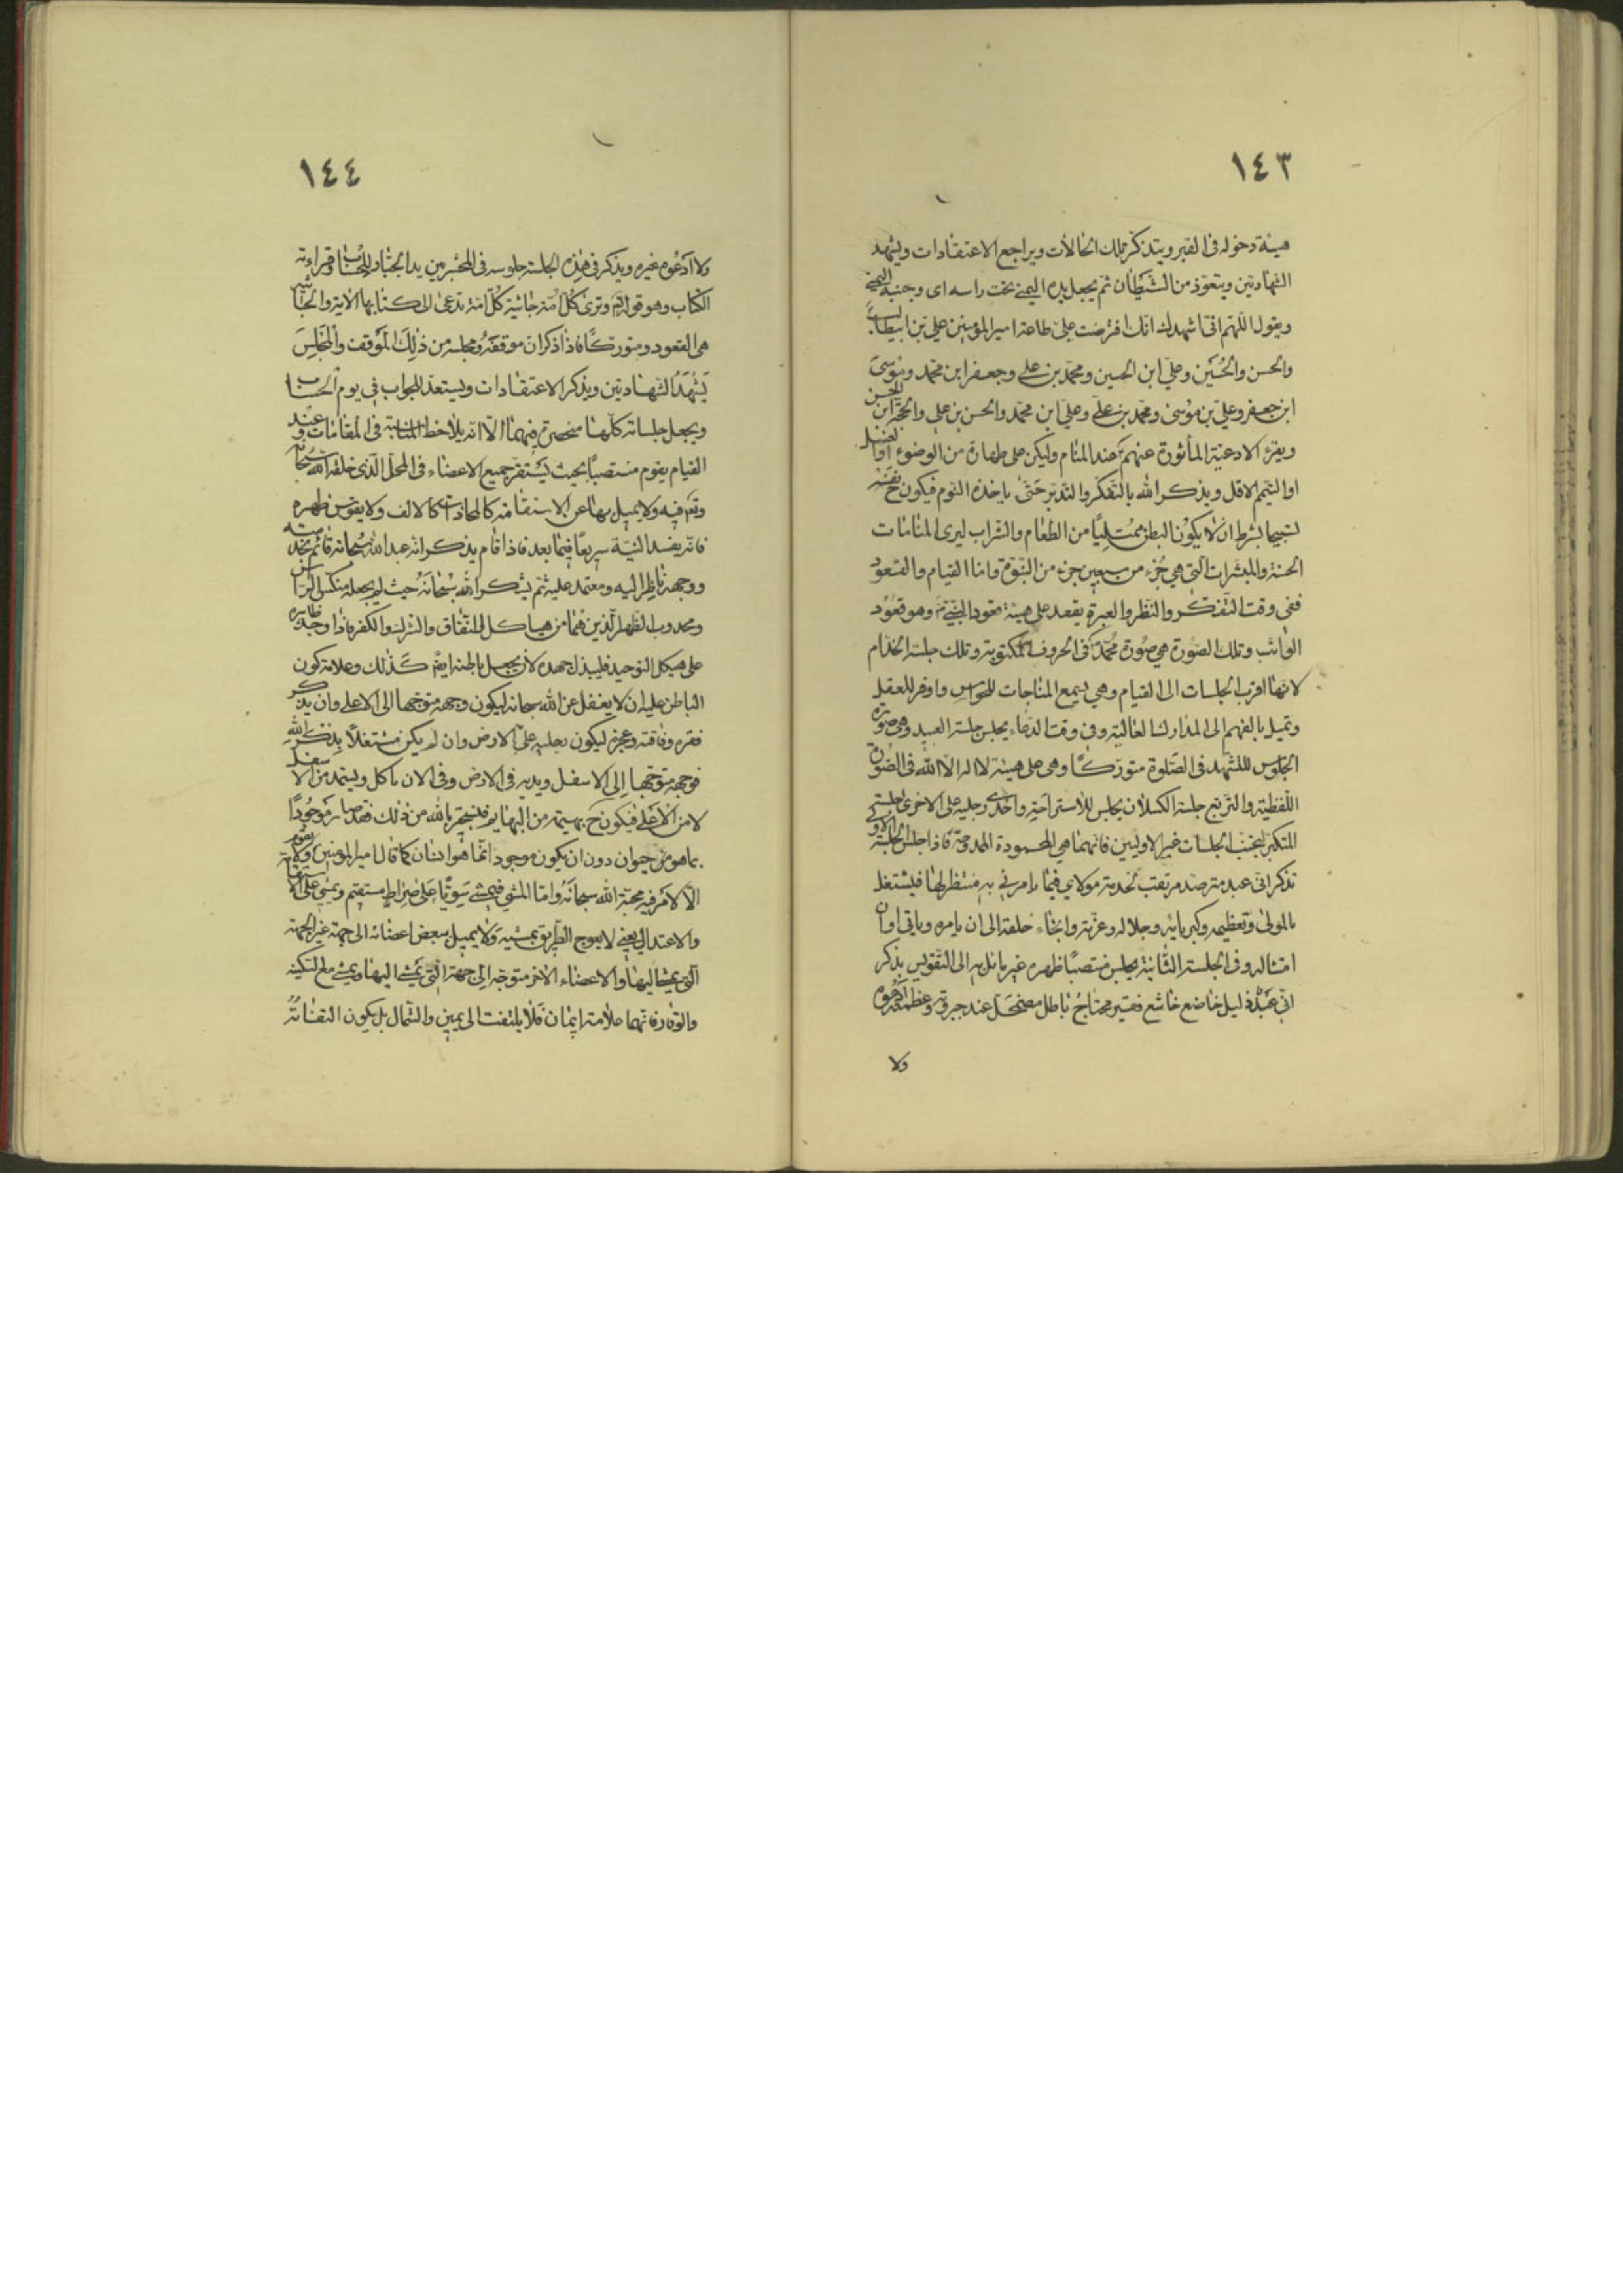 ١٤٣
هيئة دخوله في القبر ويتذكر تلك الحالات ويراجع الاعتقادات ويشهد
الشهادتين ويتعوذ من الشيطان ثم يجعل يده اليمنى تحت راسه اى وجنبه اليمنى
ويقول اللهم انى اشهدك انك افترضت علىّ طاعة امير المؤمنين على بن ابيطالب
والحسن والحسين وعلى ابن الحسين ومحمد بن على وجعفر ابن محمد وموسى
ابن جعفر وعلى بن موسى ومحمد بن على وعلى ابن محمد والحسن بن على والحجة ابن الحسن
ويقرء الادعية المأثورة عنهم عند المنام وليكن على طهارة من الوضوء او الغسل
او التيمم الاقل ويذكر الله بالتفكر والتدبر حتى ياخذه النوم فيكون ح نفسه
تسبيحا بشرط ان لا يكون البطن ممتلئا من الطعام والشراب ليرى المنامات
الحسنة والمبشرات التى هي جزء من سبعين جزء من النبوة واما القيام والقعود
ففى وقت التفكر والنظر والعبرة يقعد على هيئة قعود النبى ص وهو قعود
الواثب وتلك الصورة هي صورة محمد فى الحروف المكتوبة وتلك جلسة الخدام
لانها اقرب الجلسات الى القيام وهي يسمع المناجات للحواس واوفر للعقل
وتميل بالفهم الى المدارك العالية وفى وقت الدعاء يجلس جلسة العبيد وهى صورة
الجلوس للتشهد فى الصلوة متوركا وهى على هيئة لا اله الا الله فى الصورة
اللفظية والتربع جلسة الكسلان يجلس للاستراحة واحدى رجليه على الاخرى جلسة
المتكبر ليجتنب الجلسات غير الاوليين فانهما هي المحمودة الممدوحة فاذا جلس الجلسة الاولى
تذكر انى عبد مترصد مرتقب لخدمة مولاي فيما يامرني به منتظر لها فيشتغل
بالمولى وتعظيمه وكبريائه وجلاله وعزته وابتغاء خلقة الى ان يامره وياتى اوان
امتثاله وفى الجلسة الثانية يجلس منتصبا ظهره غير مائل به الى التقويس يذكر
انى عبد ذليل خاضع خاشع فقير محتاج باطل مضمحل عند جبروته وعظمته ارجوه
ولا
١٤٤
ولا ادعوه غيره ويذكر فى هذه الجلسة جلوسه فى المحشر بين يدا الجبار للحساب وقراءة
الكتاب وهو قوله تع وترى كل امة جاثية كل امة تدعى الى كتابها الاية والجاثية
هى القعود متوركا فاذا ذكر ان موقفه ومجلسه من ذلك الموقف والمجلس
يشهد الشهادتين ويذكر الاعتقادات ويستعد للجواب فى يوم الحساب
ويجعل جلساته كلها منحصرة فيهما الا انه يلاحظ المناسبة فى المقامات وعند
القيام يقوم منتصبا بحيث يستقر جميع الاعضاء فى المحل الذى خلقه الله سبحانه
وتع فيه ولا يميل بها عن الاستقامة كالمحاذات كالالف ولا يقوس ظهره
فانه يفسد النية سريعا فيما بعد فاذا قام يذكر انه عبد الله سبحانه قائم بخدمته
ووجهه ناظر اليه ومعتمد عليه ثم يشكر الله سبحانه حيث لم يجعله منكس الراس
ومحدوب الظهر الذين هما من هياكل النفاق والشرك والكفر فاذا وجد ظاهره
على هيكل التوحيد فليبذل جهده لان يجعل باطنه ايضم كذلك وعلامة كون
الباطن عليه ان لا يغفل عن الله سبحانه ليكون وجهه متوجها الى الاعلى وان يذكر
فقره وفاقته وعجزه ليكون رجليه على الارض وان لم يكن مشتغلا بذكر الله
فوجهه متوجها الى الاسفل ويديه فى الارض وفى الان ياكل ويستمد من الاسفل
لا من الاعلى فيكون ح بهيمة من البهايم فليستجير بالله من ذلك فقد صار موجودا
بما هو من حيوان دون ان يكون موجودا بما هو انسان كما قال امير المؤمنين ع ولا يقوم
الا لامر فيه محبة الله سبحانه واما المشى فيمشى سويا على صراط مستقيم ويمشى على الاستقامة
والاعتدال يعنى لا يعوج الطريق بمشيه ولا يميل ببعض اعضائه الى جهة غير الجهة
التى يمشى اليها والاعضاء الاخر متوجهة الى جهة التى يمشى اليها ويمشى مع السكينة
والوقار فانهما علامة ايمان فلا يلتفت الى يمين والشمال بل يكون التفاته